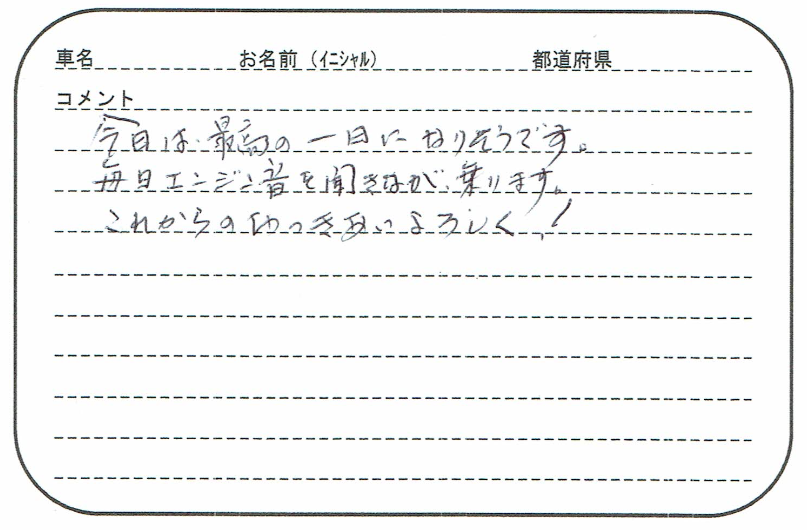 車名 お名前（ｲﾆｼｬﾙ） 都道府県
コメント
今日は、最高の一日になりそうです。
毎日エンジン音を聞きなが、乗ります。
これからのつきあいよろしく!